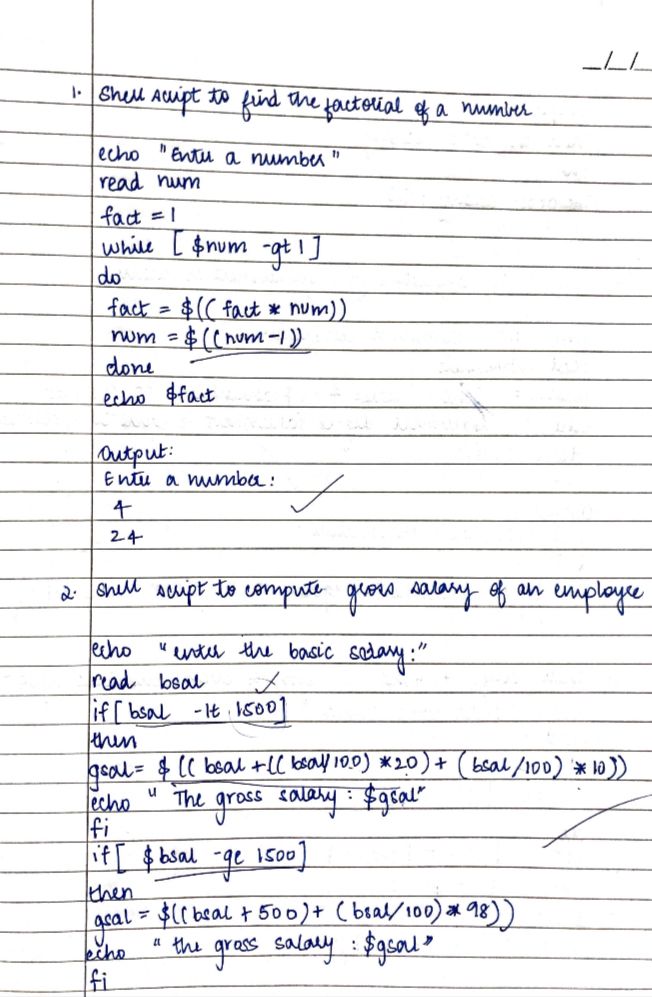 _/_/_
1. Shell script to find the factorial of a number
echo "Enter a number"
read num
fact = 1
while [ $num -gt 1 ]
do
fact = $(( fact * num))
num = $((num-1))
done
echo $fact
Output:
Enter a number:
4
24
2. Shell script to compute gross salary of an employee
echo "enter the basic salary:"
read bsal
if [ bsal -lt 1500]
then
gsal= $ (( bsal +(( bsal/100) *20) + (bsal/100) * 10))
echo " The gross salary : $gsal"
fi
if [ $bsal -ge 1500]
then
gsal = $((bsal + 500)+ (bsal/100) * 98))
echo " the gross salary : $gsal"
fi